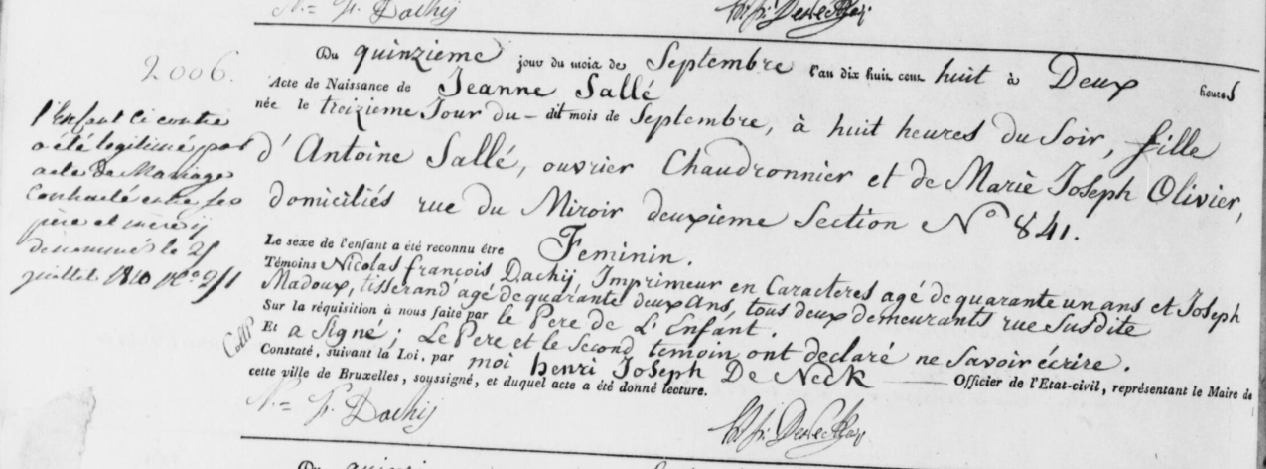 N.= f. Dachij
Du quinzieme jour du mois de Septembre l'an dix huit cent huit à Deux heures
2006.
Acte de Naissance de Jeanne Sallé
née le treizieme Jour du - dit mois de Septembre, à huit heures du Soir, fille
d'Antoine Sallé, ouvrier Chaudronnier et de Marie Joseph Olivier,
domiciliés rue du Miroir deuxieme Section N° 841.
Le sexe de l'enfant a été reconnu être Feminin.
Témoins Nicolas françois Dachij, Imprimeur en Caracteres agé de quarante un ans et Joseph
Madoux, tisserand agé de quarante deux Ans, tous deux demeurants rue Susdite
Sur la réquisition à nous faite par le Pere de L'Enfant.
Et a Signé; Le Pere et le Second temoin ont déclaré ne Savoir écrire.
Constaté, suivant la Loi, par moi henri Joseph De Neck Officier de l'Etat-civil, représentant le Maire de
cette ville de Bruxelles, soussigné, et duquel acte a été donné lecture.
N.= f. Dachij
l'Enfant Ci contre
a été légitimé par
acte de Mariage
Contracté entre ses
père et mère ij
denommés le 25
juillet 1810 N°
Du